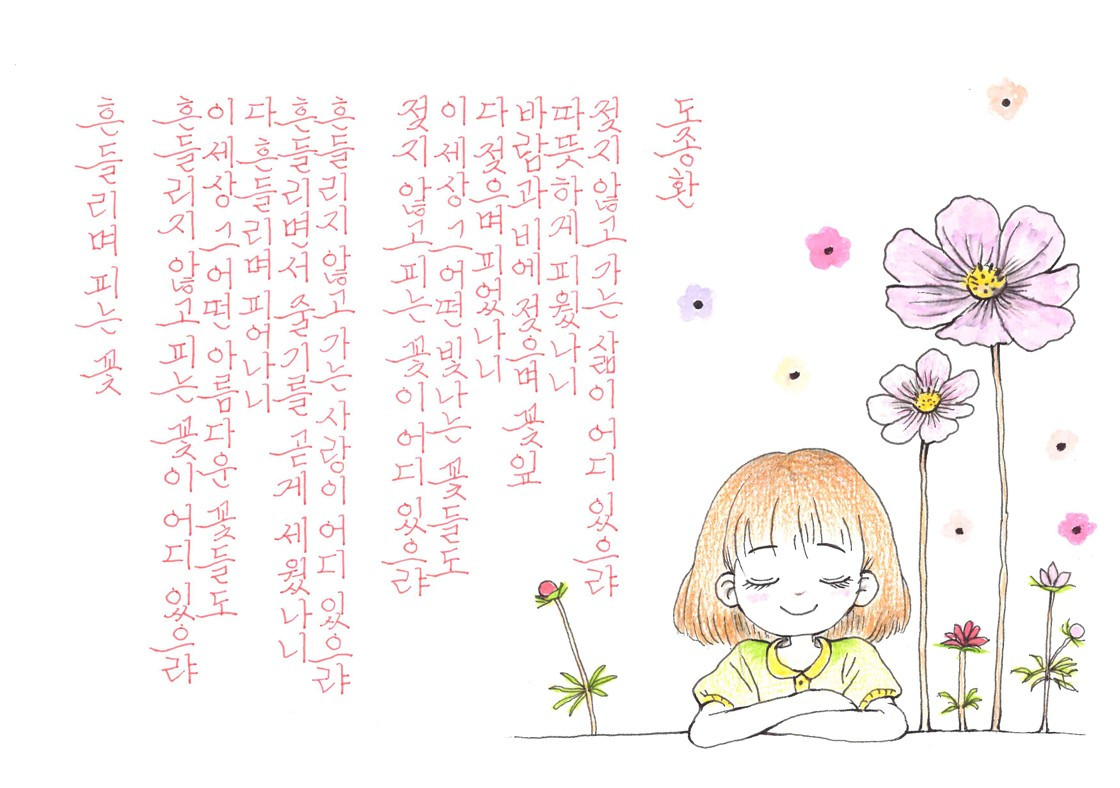 흔들리며 피는 꽃
흔들리지 않고 피는 꽃이 어디 있으랴
이 세상 그 어떤 아름다운 꽃들도
다 흔들리며 피어나니
흔들리면서 줄기를 곧게 세웠나니
흔들리지 않고 가는 사랑이 어디 있으랴
젖지 않고 피는 꽃이 어디 있으랴
이 세상 그 어떤 빛나는 꽃들도
다 젖으며 피었나니
바람과 비에 젖으며 꽃잎
따뜻하게 피웠나니
젖지 않고 가는 삶이 어디 있으랴
도종환